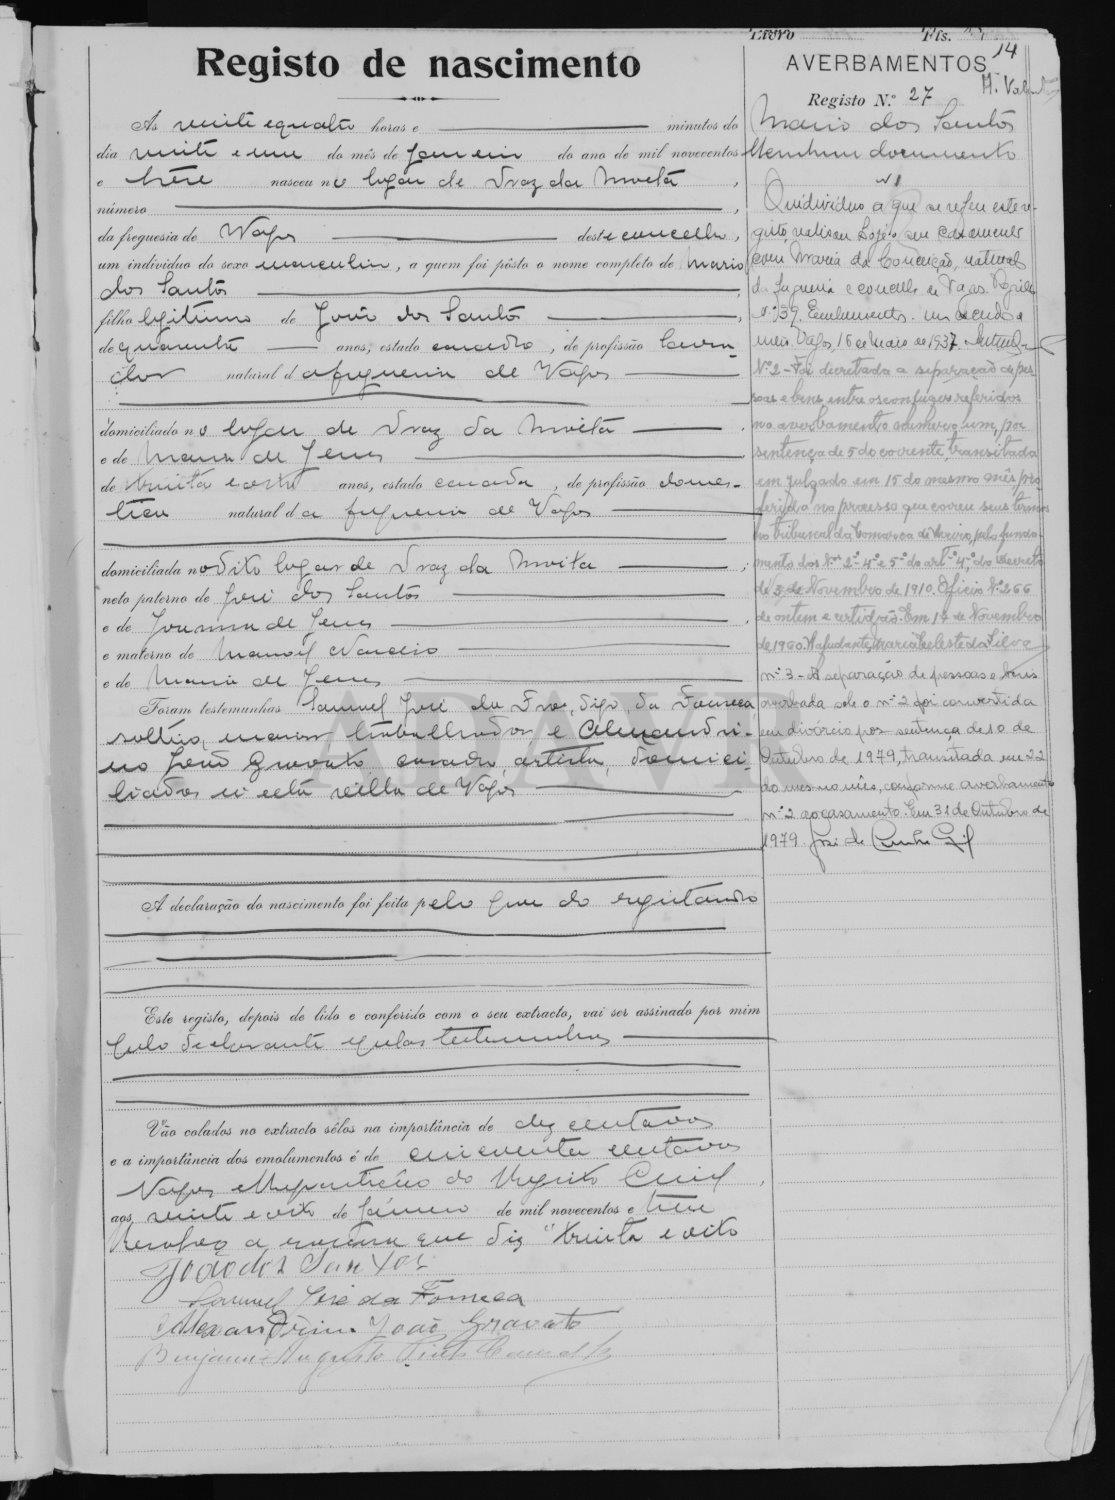 Livro Fls.
14
Registo de nascimento
As vinte e quatro horas e minutos do
dia vinte e um do mês de Janeiro do ano de mil novecentos
e treze nasceu no logar de Vraz da Moita,
número ,
da freguesia de Vagos deste concelho,
um individuo do sexo masculino, a quem foi pôsto o nome completo de Mario
dos Santos
filho legitimo de João dos Santos ,
de quarenta anos, estado casado, de profissão lavra-
dor natural da freguesia de Vagos
domiciliado no logar de Vraz da Moita ,
e de Maria de Jesus
de trinta e oito anos, estado casada, de profissão domes-
tica natural da freguesia de Vagos
domiciliada no dito logar de Vraz da Moita ;
neto paterno de José dos Santos
e de Joanna de Jesus ,
e materno de Manoel
e de Maria de Jesus
Foram testemunhas Samuel José da digo, da Fonseca
solteiro, maior trabalhador, e Alexandri-
no João Gravato casado, artista, domici-
liados n'esta villa de Vagos
A declaração do nascimento foi feita pelo pae do registando
Este registo, depois de lido e conferido com o seu extracto, vai ser assinado por mim
pelo declarante e pelas testemunhas
Vão colados no extracto sêlos na importância de dez centavos
e a importância dos emolumentos é de cincoenta centavos
Vagos e Repartição do Registo Civil,
aos vinte e oito de Janeiro de mil novecentos e treze
Resalvo a rasura que diz "trinta e oito
João dos Santos
Samuel José da Fonseca
Alexandrino João Gravato
Benjamin Augusto
AVERBAMENTOS
Registo N.º 27
Mario dos Santos
Nenhum documento
Nº 1
O individuo a que se refere este re-
gisto, realisou hoje o seu casamento
com Maria da Conceição, natural
da freguesia e concelho de Vagos. Registo
nº 39. Emolumentos: um escudo e
meio. Vagos, 16 de Maio de 1937.
Nº 2 - Foi decretada a separação de pes-
soas e bens entre os conjuges referidos
no averbamento numero um, por
sentença de 5 do corrente, transitada
em julgado em 15 do mesmo mês, pro-
ferida no processo que correu seus termos
no tribunal da Comarca de Aveiro, pelo funda-
mento dos Nos 2º- 4º e 5º do artº 4º, do Decreto
de 3 de Novembro de 1910. Oficio Nº 266
de ontem e certidão. Em de Novembro
de 1960. A ajudante, Maria Celeste da Silva
nº 3 - A separação de pessoas e bens
averbada sob o nº 2 foi convertida
em divórcio por sentença de 10 de
Outubro de 1979, transitada em 22
do mesmo mês, conforme averbamento
nº 2 ao casamento. Em 31 de Outubro de
1979. José da Cunha Gil
ADAVR